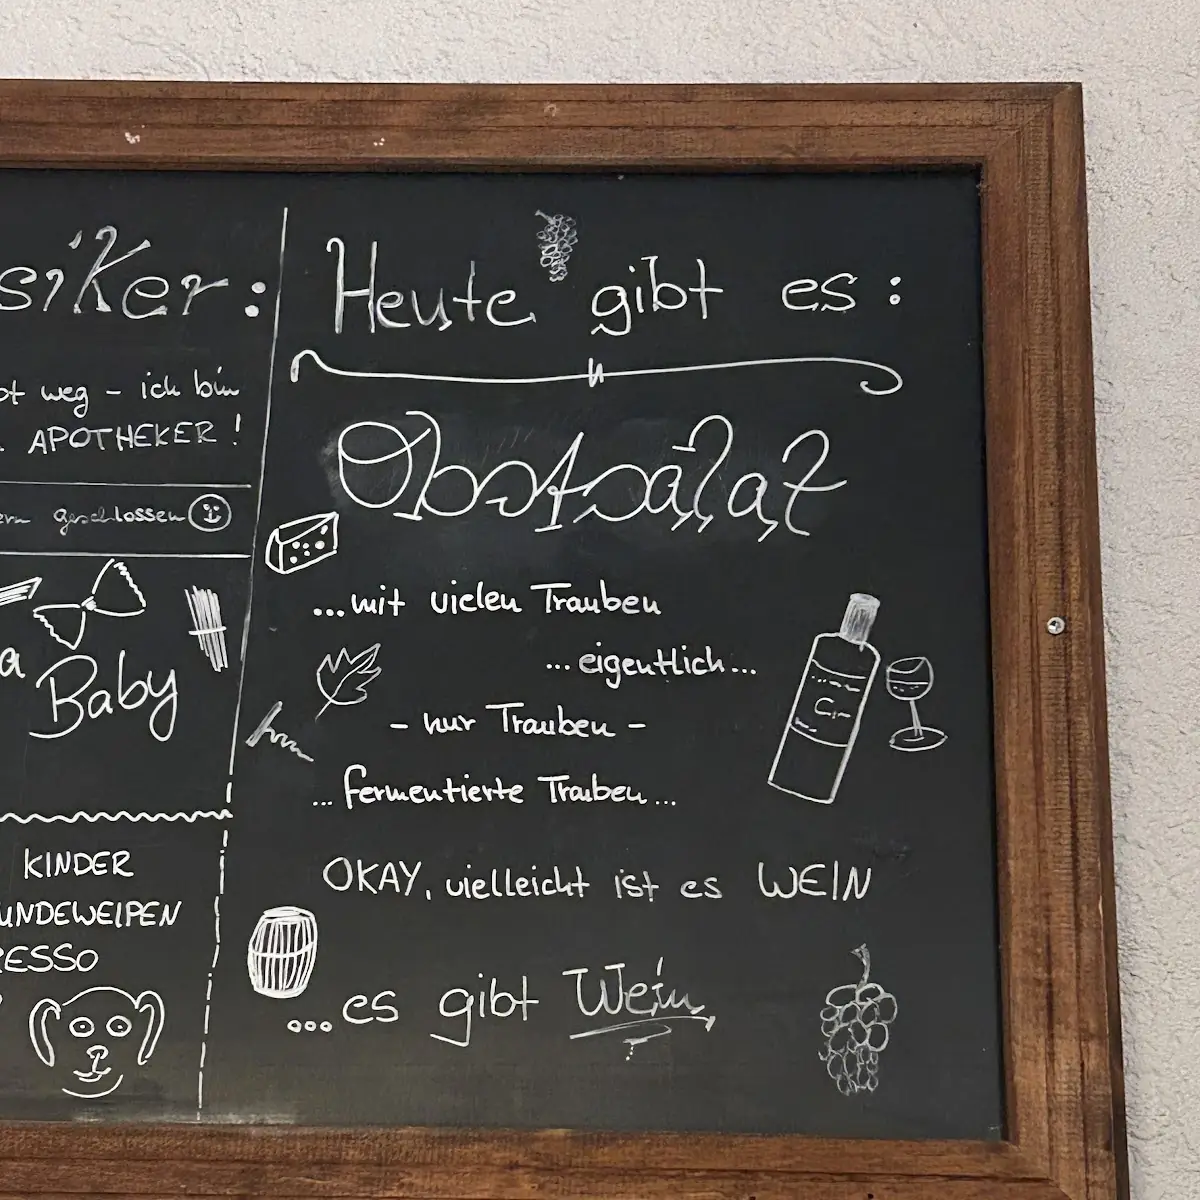 siKer:
weg – ich bin
APOTHEKER!
geschlossen
Baby
KINDER
UNDEWELPEN
RESSO
Heute gibt es:
Obstsalat
...mit vielen Trauben
...eigentlich...
- nur Trauben -
... fermentierte Trauben...
OKAY, vielleicht ist es WEIN
...es gibt Wein